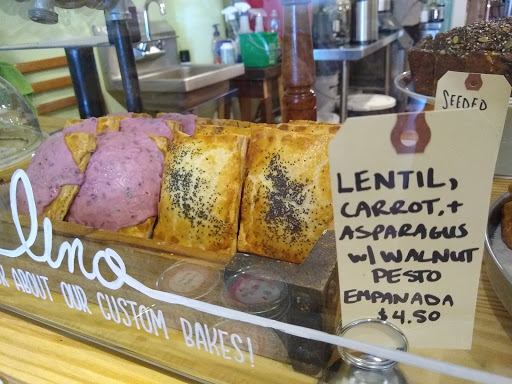 SEEDED
LENTIL,
CARROT, +
ASPARAGUS
W/ WALNUT
PESTO
EMPANADA
$4.50
lino
ABOUT OUR CUSTOM BAKES!